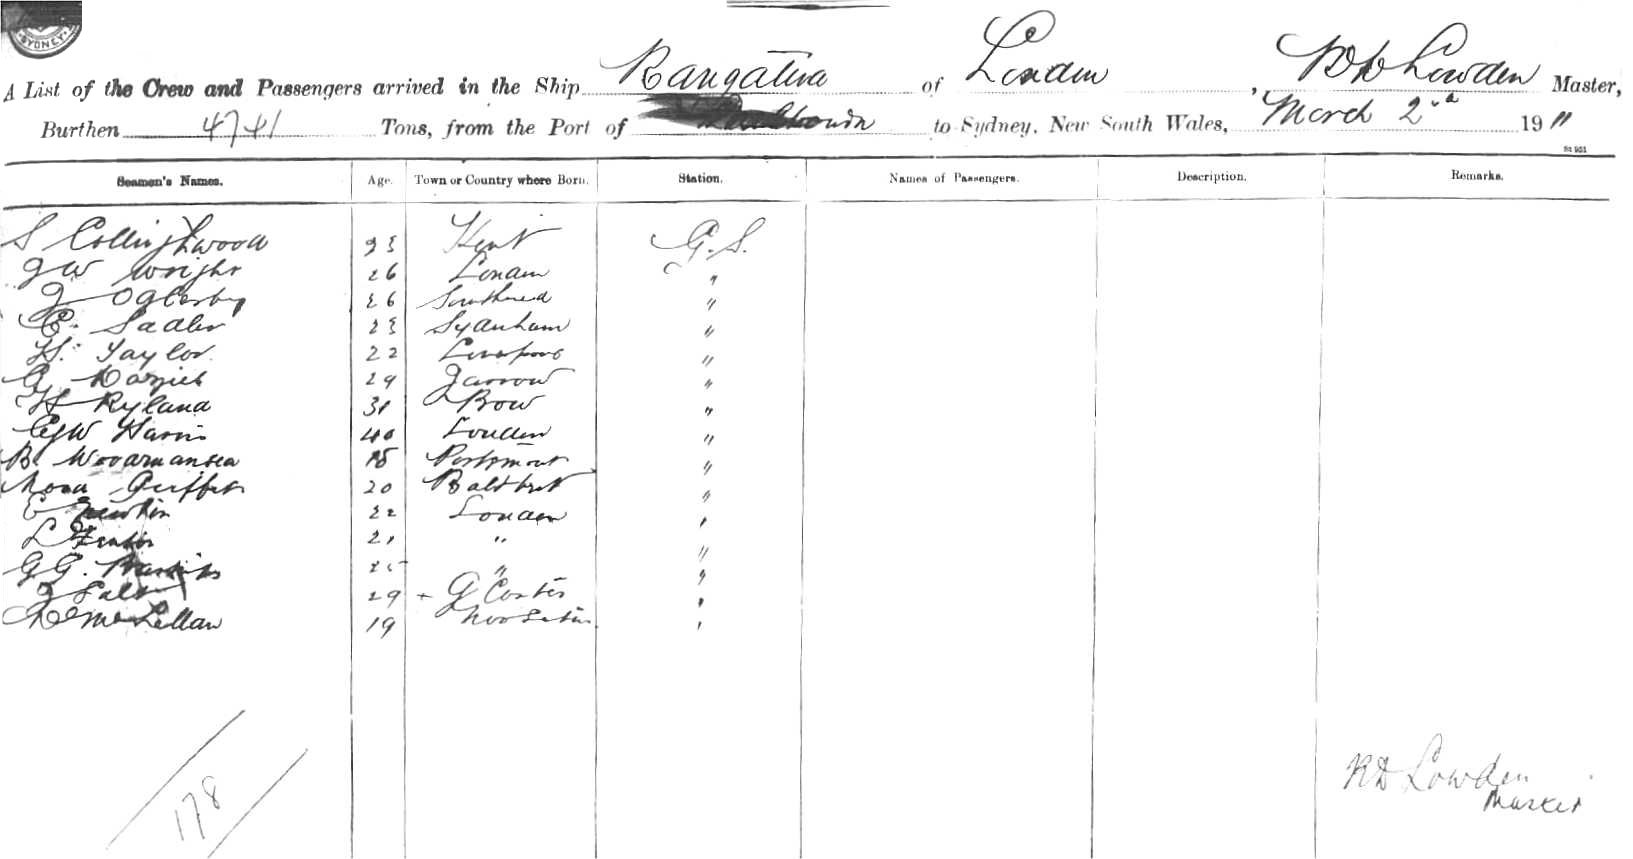 SYDNEY
A List of the Crew and Passengers arrived in the Ship Rangatira of London, Lowden Master,
Burthen 4741 Tons, from the Port of to Sydney, New South Wales, March 2nd 1911
Seamen's Names. Age. Town or Country where Born. Station. Names of Passengers. Description. Remarks.
S Collingwood 23 Kent G.S.
J W Wright 26 London "
J Oglesby 26 Southend "
E. Sadler 23 Sydenham "
H. Taylor 22 Liverpool "
G 29 Jarrow "
H Ryland 31 Bow "
G W Harris 40 London "
B Woodmansea 18 Portsmout "
20 "
E 22 London "
L 21 " "
G G. " "
J 29 "
McLellan 19 "
178
R D Lowden
Master